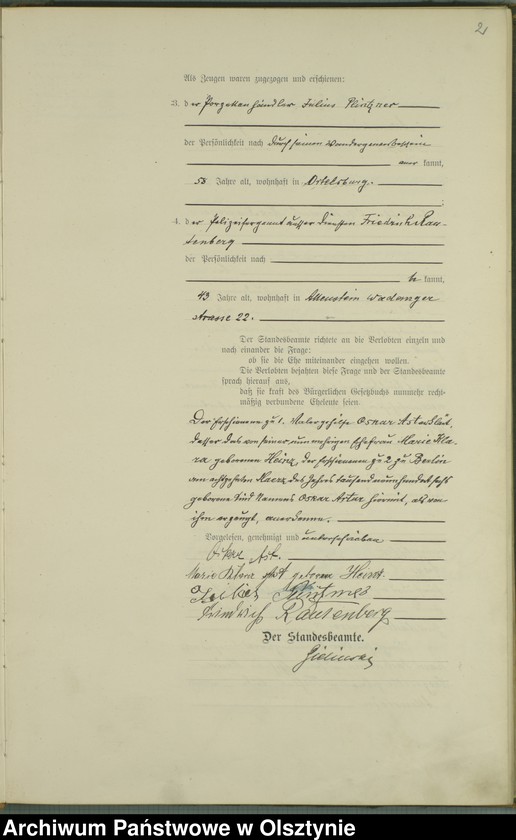 2
Als Zeugen waren zugezogen und erschienen:
3. der Porzellanhändler Julius
der Persönlichkeit nach durch seinen Wandergewerbeschein
aner kannt,
58 Jahre alt, wohnhaft in Ortelsburg.
;
4. der Polizeisergeant außer Diensten Friedrich Rau-
tenberg
der Persönlichkeit nach
be kannt,
43 Jahre alt, wohnhaft in Allenstein Wadanger
strasse 22.
Der Standesbeamte richtete an die Verlobten einzeln und
nach einander die Frage:
ob sie die Ehe miteinander eingehen wollen.
Die Verlobten bejahten diese Frage und der Standesbeamte
sprach hierauf aus,
daß sie kraft des Bürgerlichen Gesetzbuchs nunmehr recht-
mäßig verbundene Eheleute seien.
Der Erschienene zu 1. Malergehilfe Oskar
das von seiner nunmehrigen Ehefrau Marie Kla-
ra geborenen Heinz, der Erschienenen zu 2 zu Berlin
am achtzehnten März des Jahres tausend neunhundert sechs
geborene Kind Namens Oskar Artur hiermit, als von
ihm erzeugt, anerkenne.
Vorgelesen, genehmigt und unterschrieben
Oskar
Marie Klara geborene Heinz.
Friedrich Rautenberg
Der Standesbeamte.
Archiwum Państwowe w Olsztynie